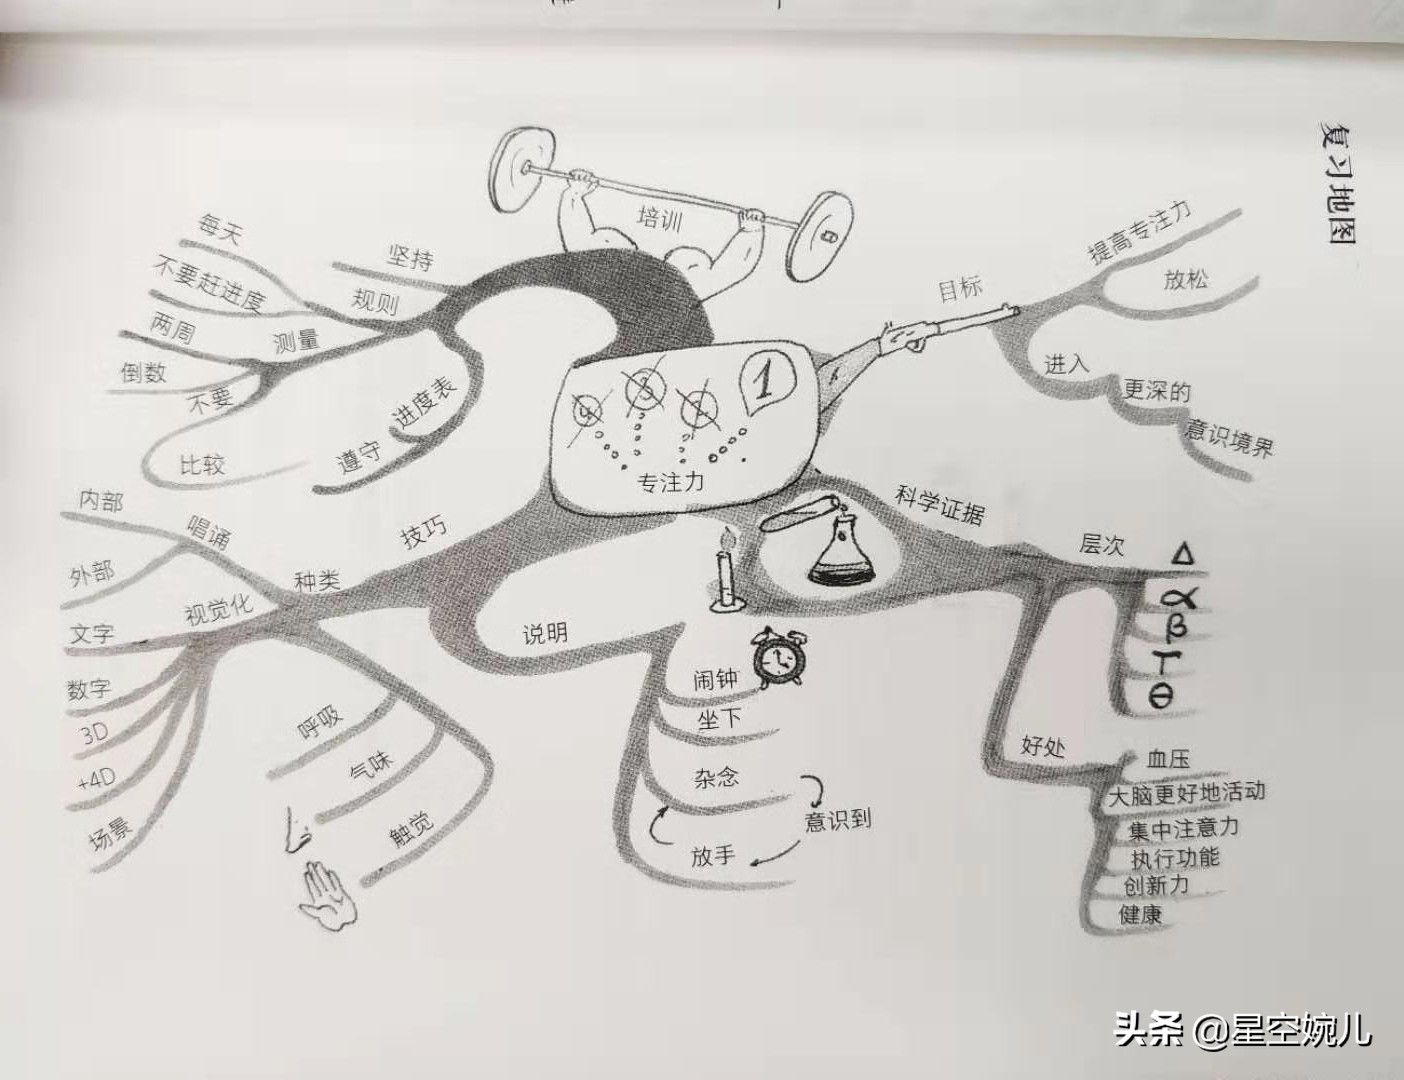 复习地图
培训
坚持
规则
每天
不要赶进度
测量
两周
倒数
不要
比较
进度表
遵守
目标
提高专注力
放松
进入
更深的
意识境界
4
3
2
1
专注力
科学证据
层次
Δ
α
β
Γ
θ
好处
血压
大脑更好地活动
集中注意力
执行功能
创新力
健康
技巧
种类
唱诵
内部
外部
视觉化
文字
数字
3D
+4D
场景
呼吸
气味
触觉
说明
闹钟
坐下
杂念
意识到
放手
头条 @星空婉儿